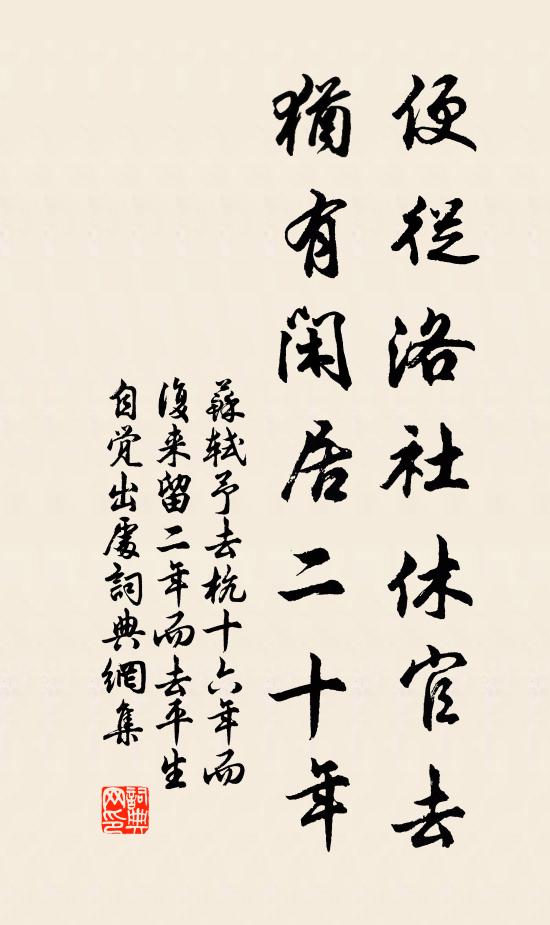 便從洛社休官去
猶有閑居二十年
蘇軾予去杭十六年而
復来留二年而去平生
自觉出處詞典網集
詞典網印